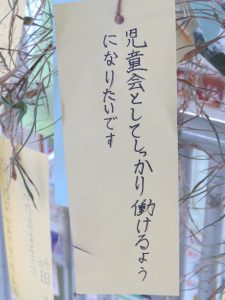 児童会としてしっかり働けるよう
になりたいです